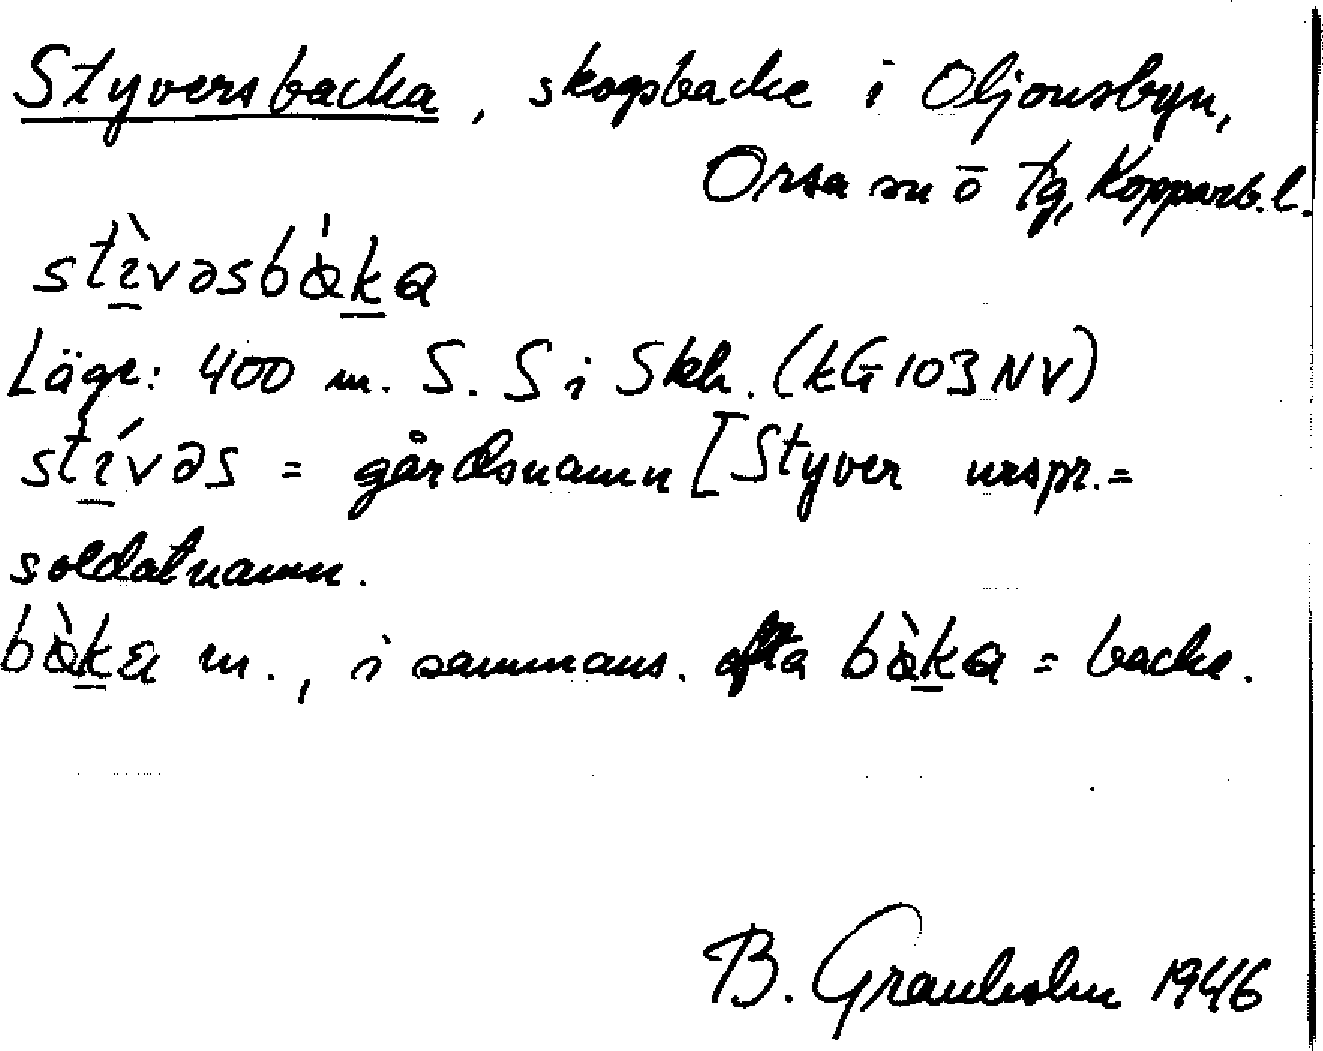 Styversbacka, skogsbacke i Oljonsbyn,
Orsa sn ō tg, Kopparb.l.
stìvəsbàka
Läge: 400 m. S. S i Skh. (kG 103 NV)
stívəs = gårdsnamn [Styver urspr. =
soldatnamn.
bàka m., i sammans. ofta bàka = backe.
B. Granholm 1946